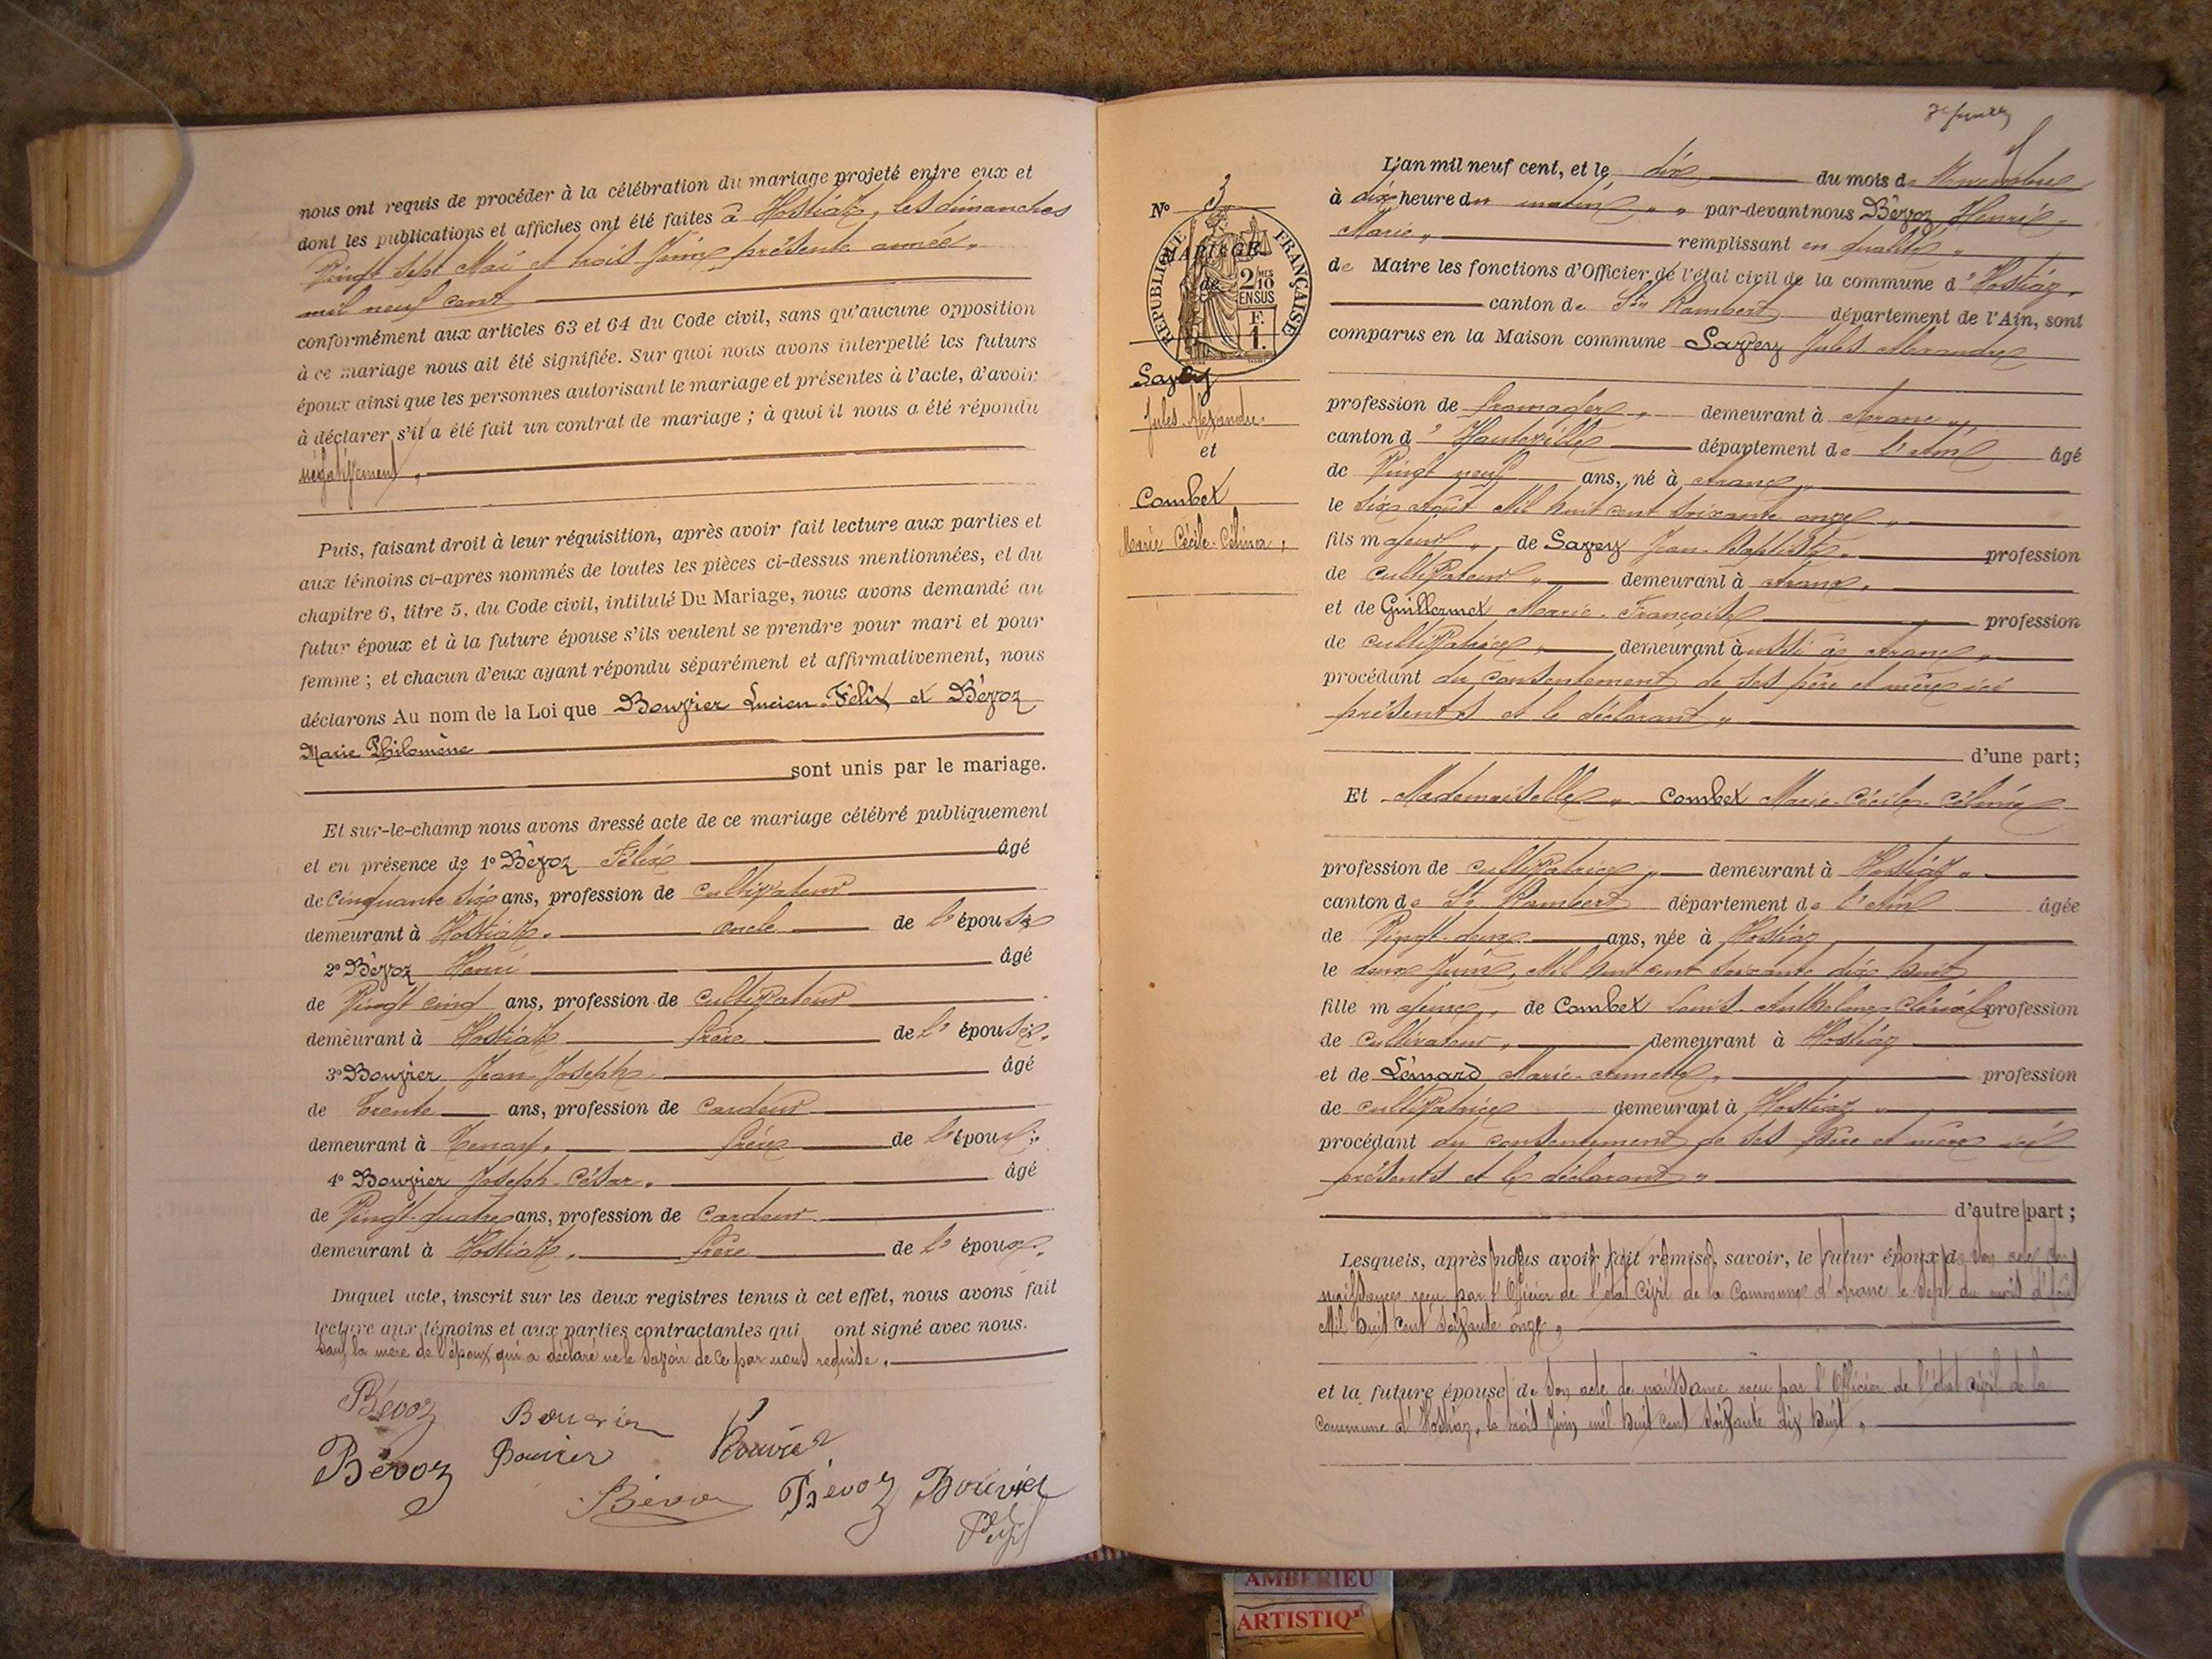 nous ont requis de procéder à la célébration du mariage projeté entre eux et
dont les publications et affiches ont été faites à Hostiaz, les dimanches
Vingt sept Mai et trois Juin présente année,
mil neuf cent
conformément aux articles 63 et 64 du Code civil, sans qu'aucune opposition
à ce mariage nous ait été signifiée. Sur quoi nous avons interpellé les futurs
époux ainsi que les personnes autorisant le mariage et présentes à l'acte, d'avoir
à déclarer s'il a été fait un contrat de mariage ; à quoi il nous a été répondu
négativement,
Puis, faisant droit à leur réquisition, après avoir fait lecture aux parties et
aux témoins ci-après nommés de toutes les pièces ci-dessus mentionnées, et du
chapitre 6, titre 5, du Code civil, intitulé Du Mariage, nous avons demandé au
futur époux et à la future épouse s'ils veulent se prendre pour mari et pour
femme ; et chacun d'eux ayant répondu séparément et affirmativement, nous
déclarons Au nom de la Loi que Bouvier Lucien-Félix et Bévoz
Marie Philomène
sont unis par le mariage.
Et sur-le-champ nous avons dressé acte de ce mariage célébré publiquement
et en présence de 1° Bévoz Félix âgé
de cinquante six ans, profession de cultivateur
demeurant à Hostiaz. oncle de l'épouse
2° Bévoz Henri âgé
de Vingt cinq ans, profession de cultivateur
demeurant à Hostiaz frère de l'épouse.
3° Bouvier Jean-Joseph âgé
de trente ans, profession de cardeur
demeurant à Tenay. frère de l'époux.
4° Bouvier Joseph-César. âgé
de Vingt-quatre ans, profession de cardeur
demeurant à Hostiaz. frère de l'époux.
Duquel acte, inscrit sur les deux registres tenus à cet effet, nous avons fait
lecture aux témoins et aux parties contractantes qui ont signé avec nous.
Sauf la mère de l'époux qui a déclaré ne le savoir de ce par nous requise.
Bévoz Bouvier Bouvier
Bévoz Bouvier
Bévoz Bévoz Bouvier
L'an mil neuf cent, et le dix du mois de Novembre
à dix heure du matin par-devant nous Bévoz Henri-
Marie, remplissant en qualité
de Maire les fonctions d'Officier de l'état civil de la commune d'Hostiaz,
canton de St Rambert département de l'Ain, sont
comparus en la Maison commune Savey Jules-Alexandre
profession de fromager demeurant à Aranc
canton d'Hauteville département de l'Ain âgé
de Vingt neuf ans, né à Aranc
le six Août Mil huit cent soixante onze
fils majeur de Savey Jean-Baptiste profession
de cultivateur demeurant à Aranc,
et de Guillermet Marie-Françoise profession
de cultivatrice demeurant aussi à Aranc
procédant du consentement de ses père et mère ici
présents et le déclarant
d'une part;
Et Mademoiselle Combet Marie-Cécile-Célina
profession de cultivatrice demeurant à Hostiaz
canton de St Rambert département de l'Ain âgée
de Vingt-deux ans, née à Hostiaz
le deux Juin, Mil huit cent soixante dix huit
fille majeure de Combet Louis-Anthelme profession
de cultivateur, demeurant à Hostiaz
et de Lémard Marie-Annette, profession
de cultivatrice demeurant à Hostiaz
procédant du consentement de ses père et mère ici
présents et le déclarant
d'autre part;
Lesquels, après nous avoir fait remise, savoir, le futur époux de son acte de
naissance reçu par l'Officier de l'état civil de la Commune d'Aranc le sept du mois d'Août
Mil huit cent soixante onze,
et la future épouse de son acte de naissance reçu par l'Officier de l'état civil de la
commune d'Hostiaz, le trois Juin mil huit cent soixante dix huit,
N° 3
RÉPUBLIQUE FRANÇAISE
MARIAGE
de
2 MES
10
EN SUS
F.
1.
Savey
Jules-Alexandre.
et
Combet
Marie-Cécile-Célina,
AMBERIEU
ARTISTIQ